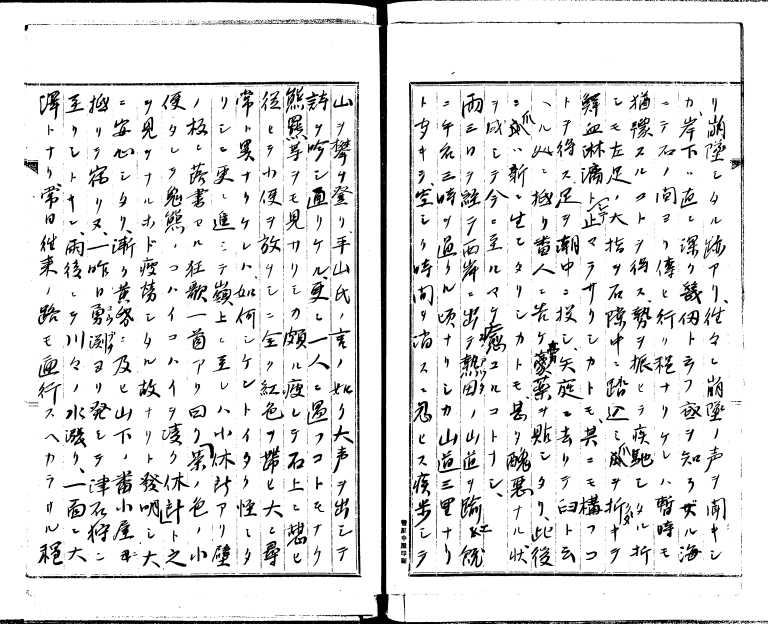 リ崩墜シタル跡アリ、往々ニ崩墜ノ声ヲ聞キシ
カ、岸下ハ直ニ深ク幾仞トモフ底ヲ知ラザル海
ニテ石ノ間ヨリ傳ヒ行ク程ナリケレハ暫時モ
猶豫スルコトヲ得ス、勢ヲ振ヒテ疾馳シタル折
シモ左足ノ大指ヲ石隙中ニ踏込ミ爪ヲ折キ
鮮血淋漓トシテ止マラサリシカトモ其ニモ構フコ
トヲ得ス足ヲ潮中ニ投シ、矢庭ニ去リテ臼ト云
ヘル処ニ極リ蕃人ニ告ケ膏藥ヲ貼シタリ此後
ニ爪ハ新ニ生シタリシカトモ甚タ醜悪ナル状
ヲ成シテ今ニ至ルマテ癒ユルコトナシ
両三日ヲ経テ西岸ニ出テ熱田ノ山道ヲ踰エ
ニ午后三時ヲ過クル頃ナリシカ山道三里ナリ
ト聞キテ空シク時間ヲ消スニ忍ヒス疾歩シテ
山ヲ攀チ登リ、平山氏ノ言ノ如ク大声ヲ出シテ
詩ヲ吟シ通リケル、更ニ一人ニ遇フコトモナク
熊羆等ヲモ見サリシカ頗ル疲レテ石上ニ憩ヒ
従ヒテ小便ヲ放ケシニ全ク紅色ヲ帯ヒ大ニ尋
常ト異ナリケレハ、如何シケレトイタク怪シタ
リシニ更ニ進ミテ嶺上ニ至レハ小休計アリ壁
ノ板ニ落書セル狂歌一首アリ曰ク茶ノ色ノ小
便タレタ鬼熊ノコハイコハイヲ凌ク休計ト之
ヲ見ツナルホド疲憊シタル故ナリト發明シ大
ニ安心シタリ、漸ク黄昏ニ及ヒ山下ノ番小屋ニ
極リテ宿リヌ、一昨日勇洞ヨリ発シテ津石狩ニ
至ラントキハ、雨後ニテ川々ノ水漲リ、一面ニ大
澤トナリ常日往来ノ路モ通行スヘカラサル程